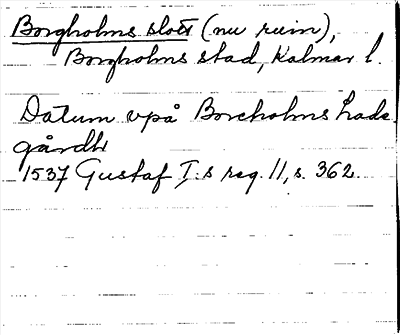 Borgholms slott (nu ruin),
Borgholms stad, Kalmar l.
Datum vpå Borcholms
gårdh
1537 Gustaf I:s reg. 11, s. 362.